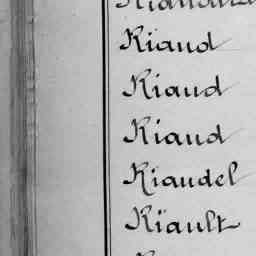 Riaud
Riaud
Riaud
Riaudel
Riault